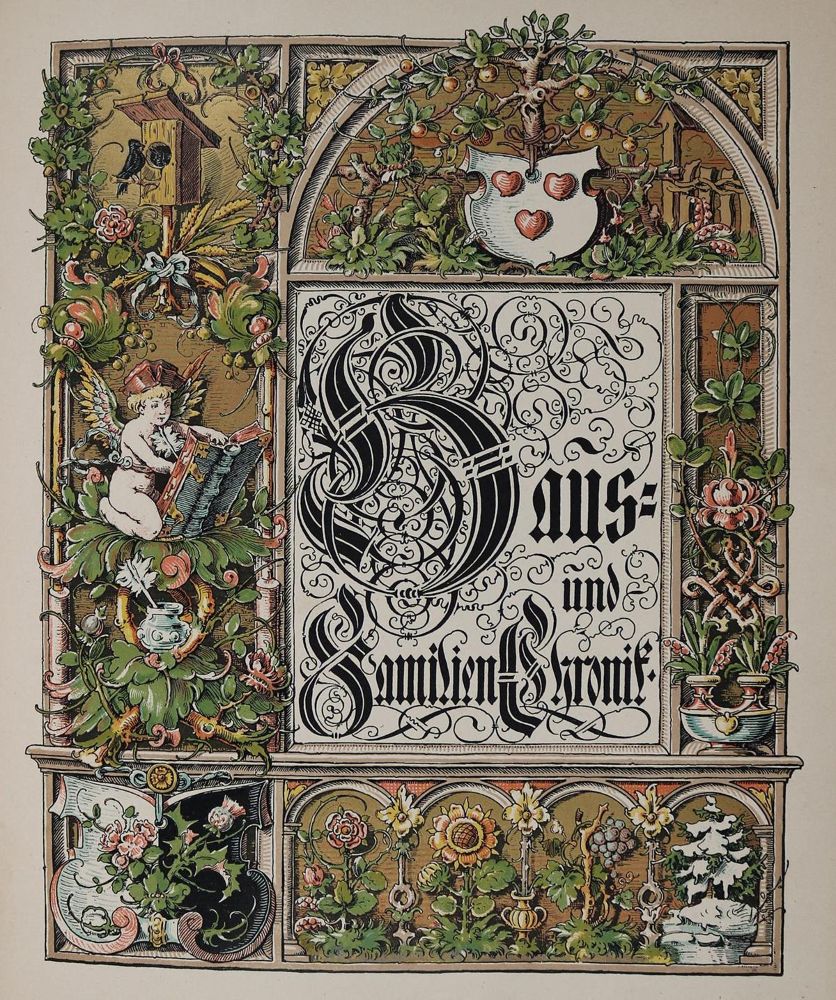 Haus-
und
Familien-Chronik.